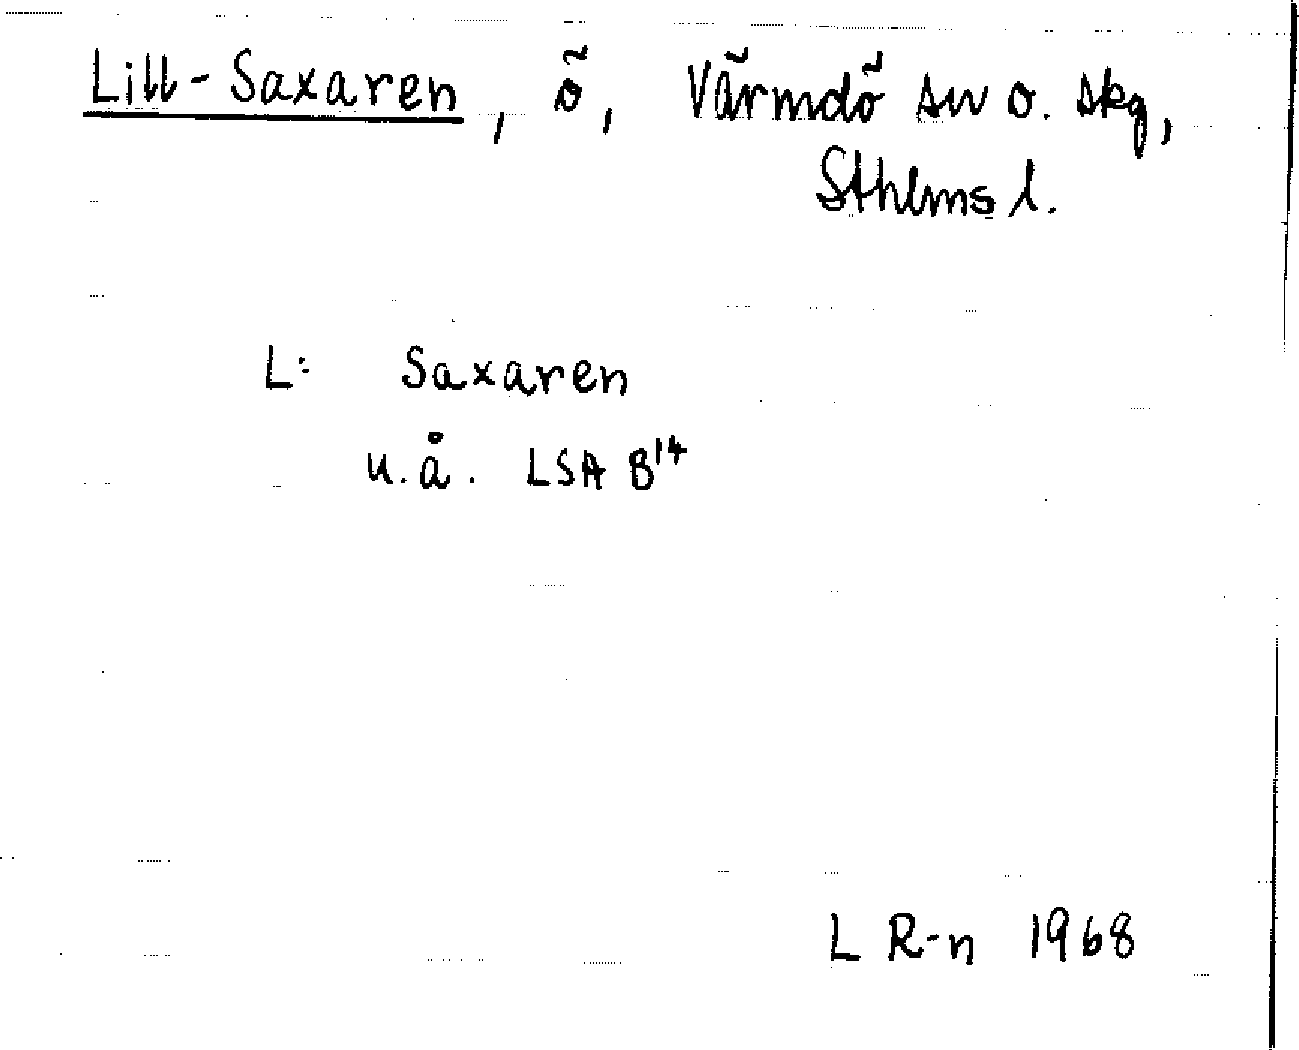 Lill-Saxaren, ö, Värmdö sn o. skg,
Sthlms l.
L: Saxaren
u.å. LSA B14
L R-n 1968